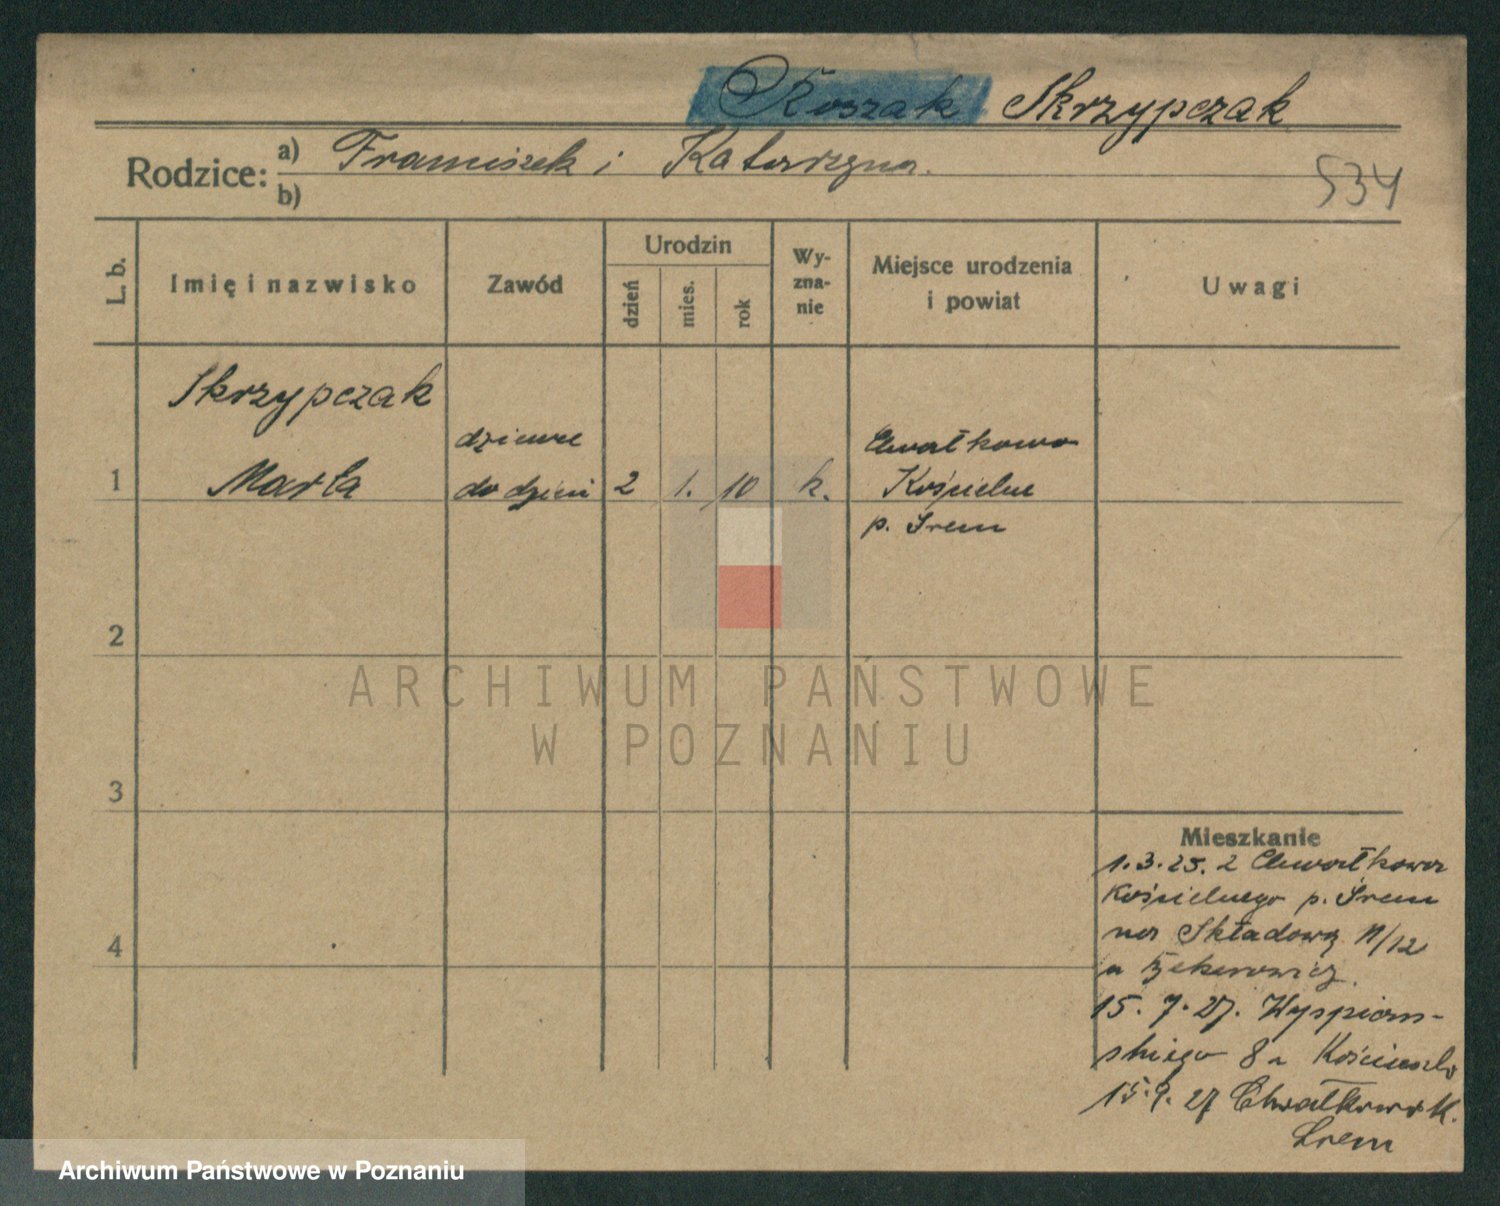 Koszak Skrzypczak
Rodzice: a) Franciszek i Katarzyna.
b)
534
L. b.
Imię i nazwisko
Zawód
Urodzin
dzień
mies.
rok
Wy-
zna-
nie
Miejsce urodzenia
i powiat
Uwagi
Skrzypczak
Marta
dziewcz
do dzieci
1
2
1.
10
k.
Chwałkowo
Kościelne
p. Śrem
2
3
4
Mieszkanie
1.3.25. z Chwałkowa
Kościelnego p. Śrem
na Składową 11/12
u
15.7.27. Wyspiań-
skiego 8 u Kościuszko
15.9.27 Chwałkowo K.
Śrem
ARCHIWUM PAŃSTWOWE
W POZNANIU
Archiwum Państwowe w Poznaniu